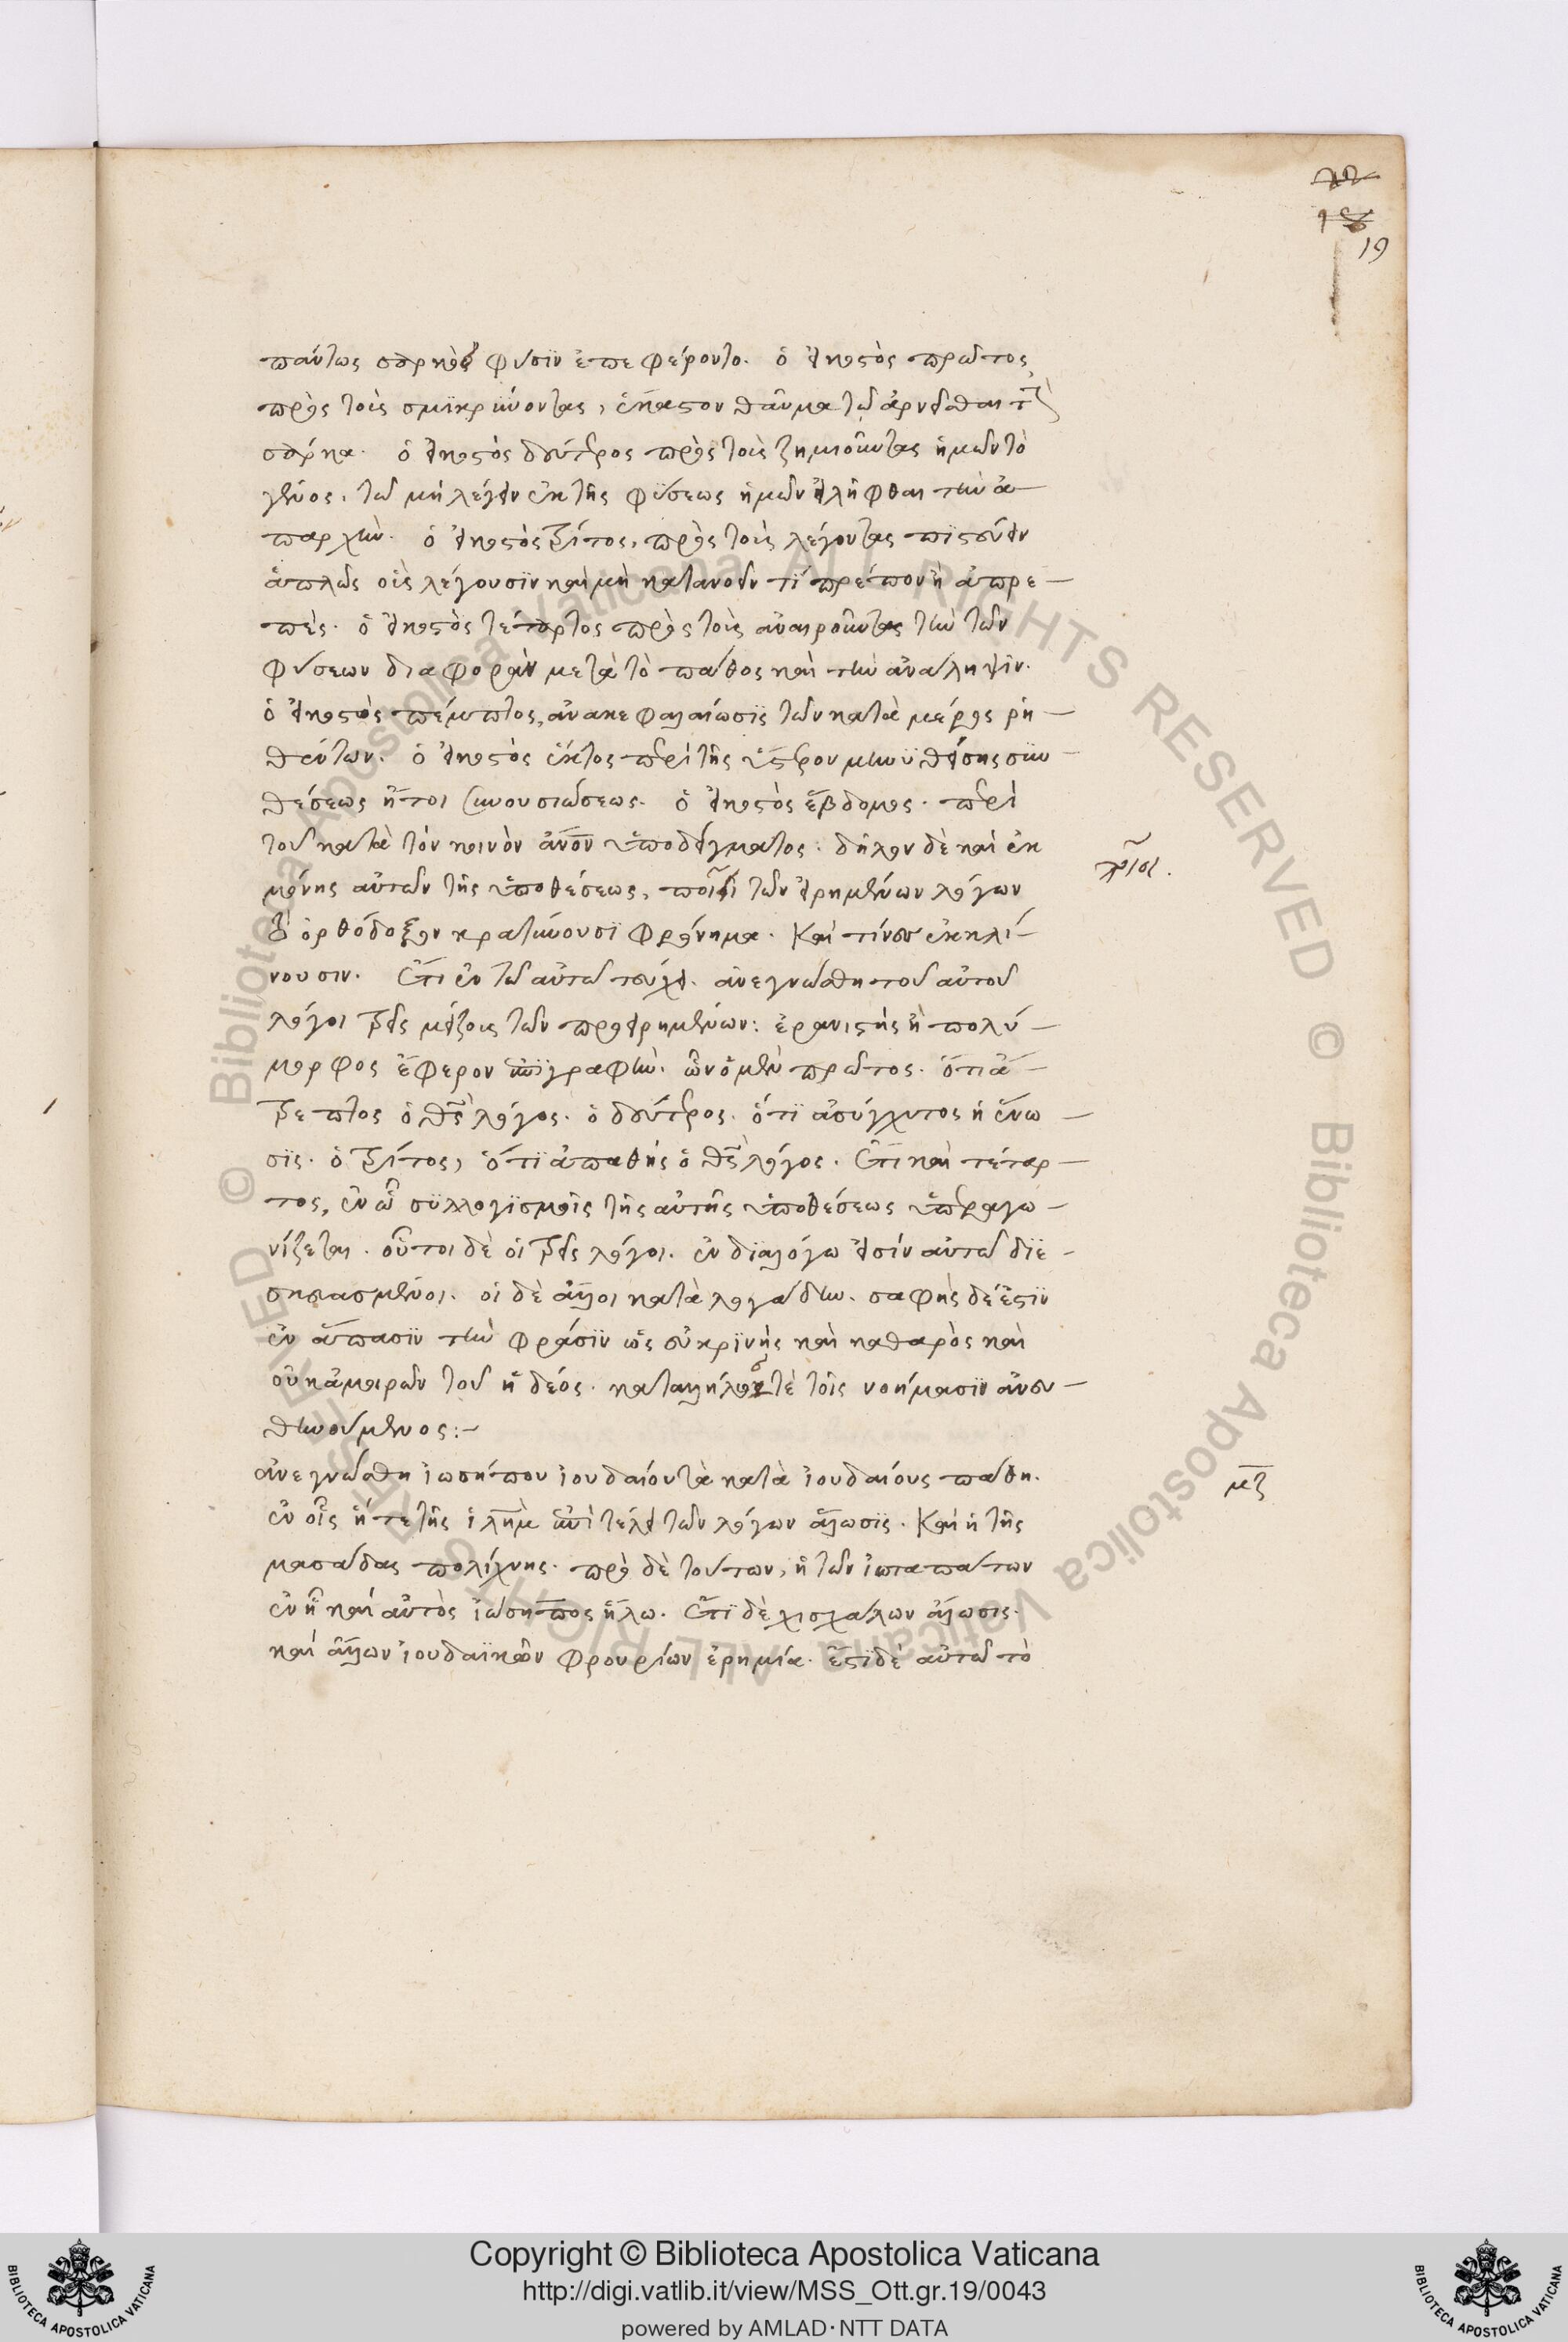 19
πάντως σαρκὸς φύσϊν ἐπεφέροντο. ὁ εἰκοστὸς πρῶτος
πρὸς τοὺς σμϊκρύνοντας, ἕκαστον θαῦμα τῷ ἀρνεῖσθαι τὴν
σάρκα. ὁ εἰκοστὸς δεύτερος πρὸς τοὺς ζημιοῦντας ἡμῶν τὸ
γένος. τῷ μὴ λέγειν ἐκ τῆς φύσεως ἡμῶν εἰλῆφθαι τὴν ἀ-
παρχήν. ὁ εἰκοστὸς τρίτος, πρὸς τοὺς λέγοντας πϊστεύειν
ἁπλῶς οἷς λέγουσϊν καὶ μὴ κατανοεῖν τί πρέπον ἢ ἀπρε-
πές. ὁ εἰκοστὸς τέταρτος πρὸς τοὺς ἀναιροῦντας τὴν τῶν
φύσεων διαφορὰν μετὰ τὸ πάθος καὶ τὴν ἀνάληψϊν.
ὁ εἰκοστὸς πέμπτος, ἀνακεφαλαίωσϊς τῶν κατὰ μέρος ῥη-
θέντων. ὁ εἰκοστὸς ἕκτος περὶ τῆς ὕστερον μυϋθείσης συν-
θέσεως ἤτοι συνουσιώσεως. ὁ εἰκοστὸς ἕβδομος. περὶ
τοῦ κατὰ τὸν κοινὸν ἄνον ὑποδείγματος. δῆλον δὲ καὶ ἐκ
μόνης αὐτῶν τῆς ὑποθέσεως, ποῖοι τῶν εἰρημένων λόγων
τὸ ὀρθόδοξον κρατύνουσϊ φρόνημα. Καὶ τίνες ἐκκλί-
νουσιν. Ἔτι ἐν τῷ αὐτῷ τεύχει. ἀνεγνώσθη τοῦ αὐτοῦ
λόγοι τρεῖς μείζους τῶν προειρημένων: ἐρανιστὴς ἢ πολύ-
μορφος ἔφερον ἐπϊγραφὴν. ὧν ὁ μὲν πρῶτος. ὅτι ἄ-
τρεπτος ὁ θς λόγος. ὁ δεύτερος. ὅτϊ ἀσύγχυτος ἡ ἕνω-
σϊς. ὁ τρίτος, ὅτϊ ἀπαθὴς ὁ θς λόγος. Ἔτι καὶ τέταρ-
τος, ἐν ᾧ συλλογϊσμοῖς τῆς αὐτῆς ὑποθέσεως ὑπεραγω-
νίζεται. οὗτοι δὲ οἱ τρεῖς λόγοι. ἐν δϊαλόγω εἰσίν αὐτῷ δϊε-
σκευασμένοι. οἱ δὲ ἄλλοι κατὰ λογάδην. σαφὴς δέ ἐστϊν
ἐν ἅπασϊν τὴν φράσϊν ὡς εὐκρϊνὴς καὶ καθαρὸς καὶ
οὐκ ἀμοιρῶν τοῦ ἡδέος. καταλλήλως τὲ τοῖς νοήμασϊν ἀνευ-
θυνούμενος:-
ἀνεγνώσθη ἰωσήπου ἰουδαίου τὰ κατὰ ἰουδαίους πάθη.
ἐν οἷς ἥ τε τῆς ἱλημ ἐπὶ τέλει τῶν λόγων ἅλωσϊς. Καὶ ἡ τῆς
μασάδας πολίχνης. πρὸ δὲ τούτων, ἡ τῶν ἰωταπάτων
ἐν ᾗ καὶ αὐτὸς ἰώσηπος ἥλω. Ἔτϊ δὲ χισχάλων ἅλωσις.
καὶ ἄλλων ἰουδαϊκῶν φρουρίων ἐρημία. ἔστϊ δὲ αὐτῷ τὸ
κρίσι.
μζ
© Biblioteca Apostolica Vaticana ALL RIGHTS RESERVED © Biblioteca Apostolica Vaticana ALL RIGHTS RESERVED
BIBLIOTECA APOSTOLICA VATICANA
Copyright © Biblioteca Apostolica Vaticana
http://digi.vatlib.it/view/MSS_Ott.gr.19/0043
powered by AMLAD·NTT DATA
BIBLIOTECA APOSTOLICA VATICANA